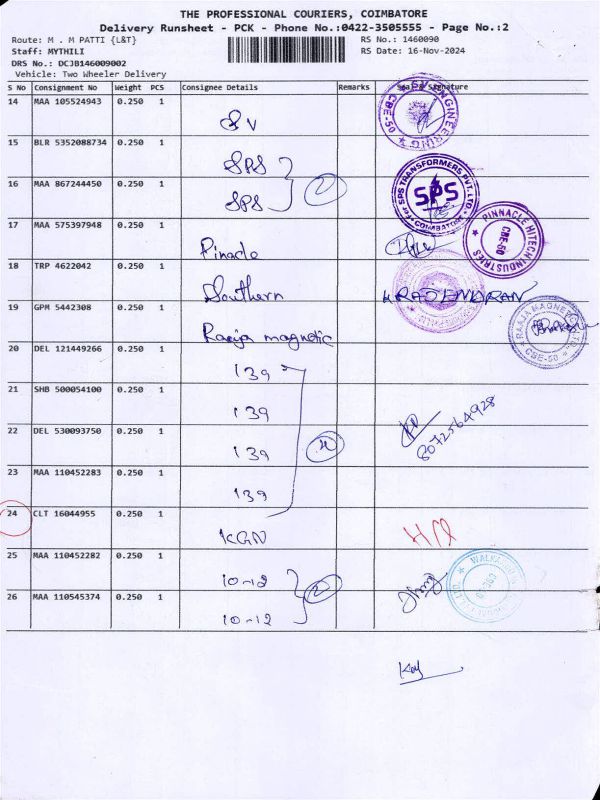 THE PROFESSIONAL COURIERS, COIMBATORE
Delivery Runsheet - PCK - Phone No.:0422-3505555 - Page No.:2
Route: M . M PATTI {L&T} RS No.: 1460090
Staff: MYTHILI RS Date: 16-Nov-2024
DRS No.: DCJB146009002
Vehicle: Two Wheeler Delivery
S No Consignment No Weight PCS Consignee Details Remarks Signature
14 MAA 105524943 0.250 1 SV
ENGINEERING CBE-50
15 BLR 5352088734 0.250 1 SPS
16 MAA 867244450 0.250 1 SPS 2
For SPS TRANSFORMERS PVT. LTD. SPS COIMBATORE
17 MAA 575397948 0.250 1 Pinacle
PINNACLE HITECH INDUSTRIES CBE-50
18 TRP 4622042 0.250 1 Southern
19 GPM 5442308 0.250 1 Raaja magnetic
CBE-50
20 DEL 121449266 0.250 1 139
21 SHB 500054100 0.250 1 139
22 DEL 530093750 0.250 1 139 4 8072564928
23 MAA 110452283 0.250 1 139
24 CLT 16044955 0.250 1 KGN
25 MAA 110452282 0.250 1 10-12
26 MAA 110545374 0.250 1 10-12 2